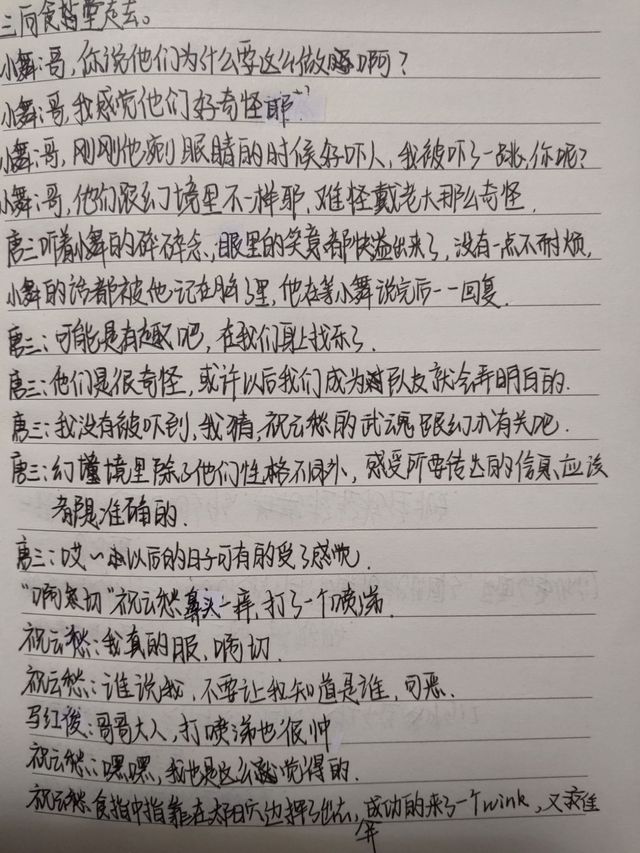 三向食堂走去。
小舞:哥,你说他们为什么要这么做啊?
小舞:哥,我感觉他们好奇怪耶
小舞:哥,刚刚他刷眼睛的时候好吓人,我被吓了一跳,你呢?
小舞:哥,他们跟幻境里不一样耶,难怪戴老大那么奇怪.
唐三听着小舞的碎碎念,眼里的笑意都快溢出来了,没有一点不耐烦,
小舞的话都被他记在脑子里,他在等小舞说完后一一回复.
唐三:可能是有趣吧,在我们身上找乐子.
唐三:他们是很奇怪,或许以后我们成为队友就会弄明白的.
唐三:我没有被吓到,我猜,祝云愁的武魂跟幻力有关吧.
唐三:幻境里除了他们性格不同外,感受所要传达的信息,应该
都是准确的.
唐三:哎~以后的日子可有的受了感觉.
“啊切”祝云愁鼻头一痒,打了一个喷涕.
祝云愁:我真的服,啊切.
祝云愁:谁说我,不要让我知道是谁,可恶.
马红俊:哥哥大人,打喷涕也很帅
祝云愁:嘿嘿,我也是这么觉得的.
祝云愁食指中指靠在太阳穴边挥了出去,成功的来了一个wink,又